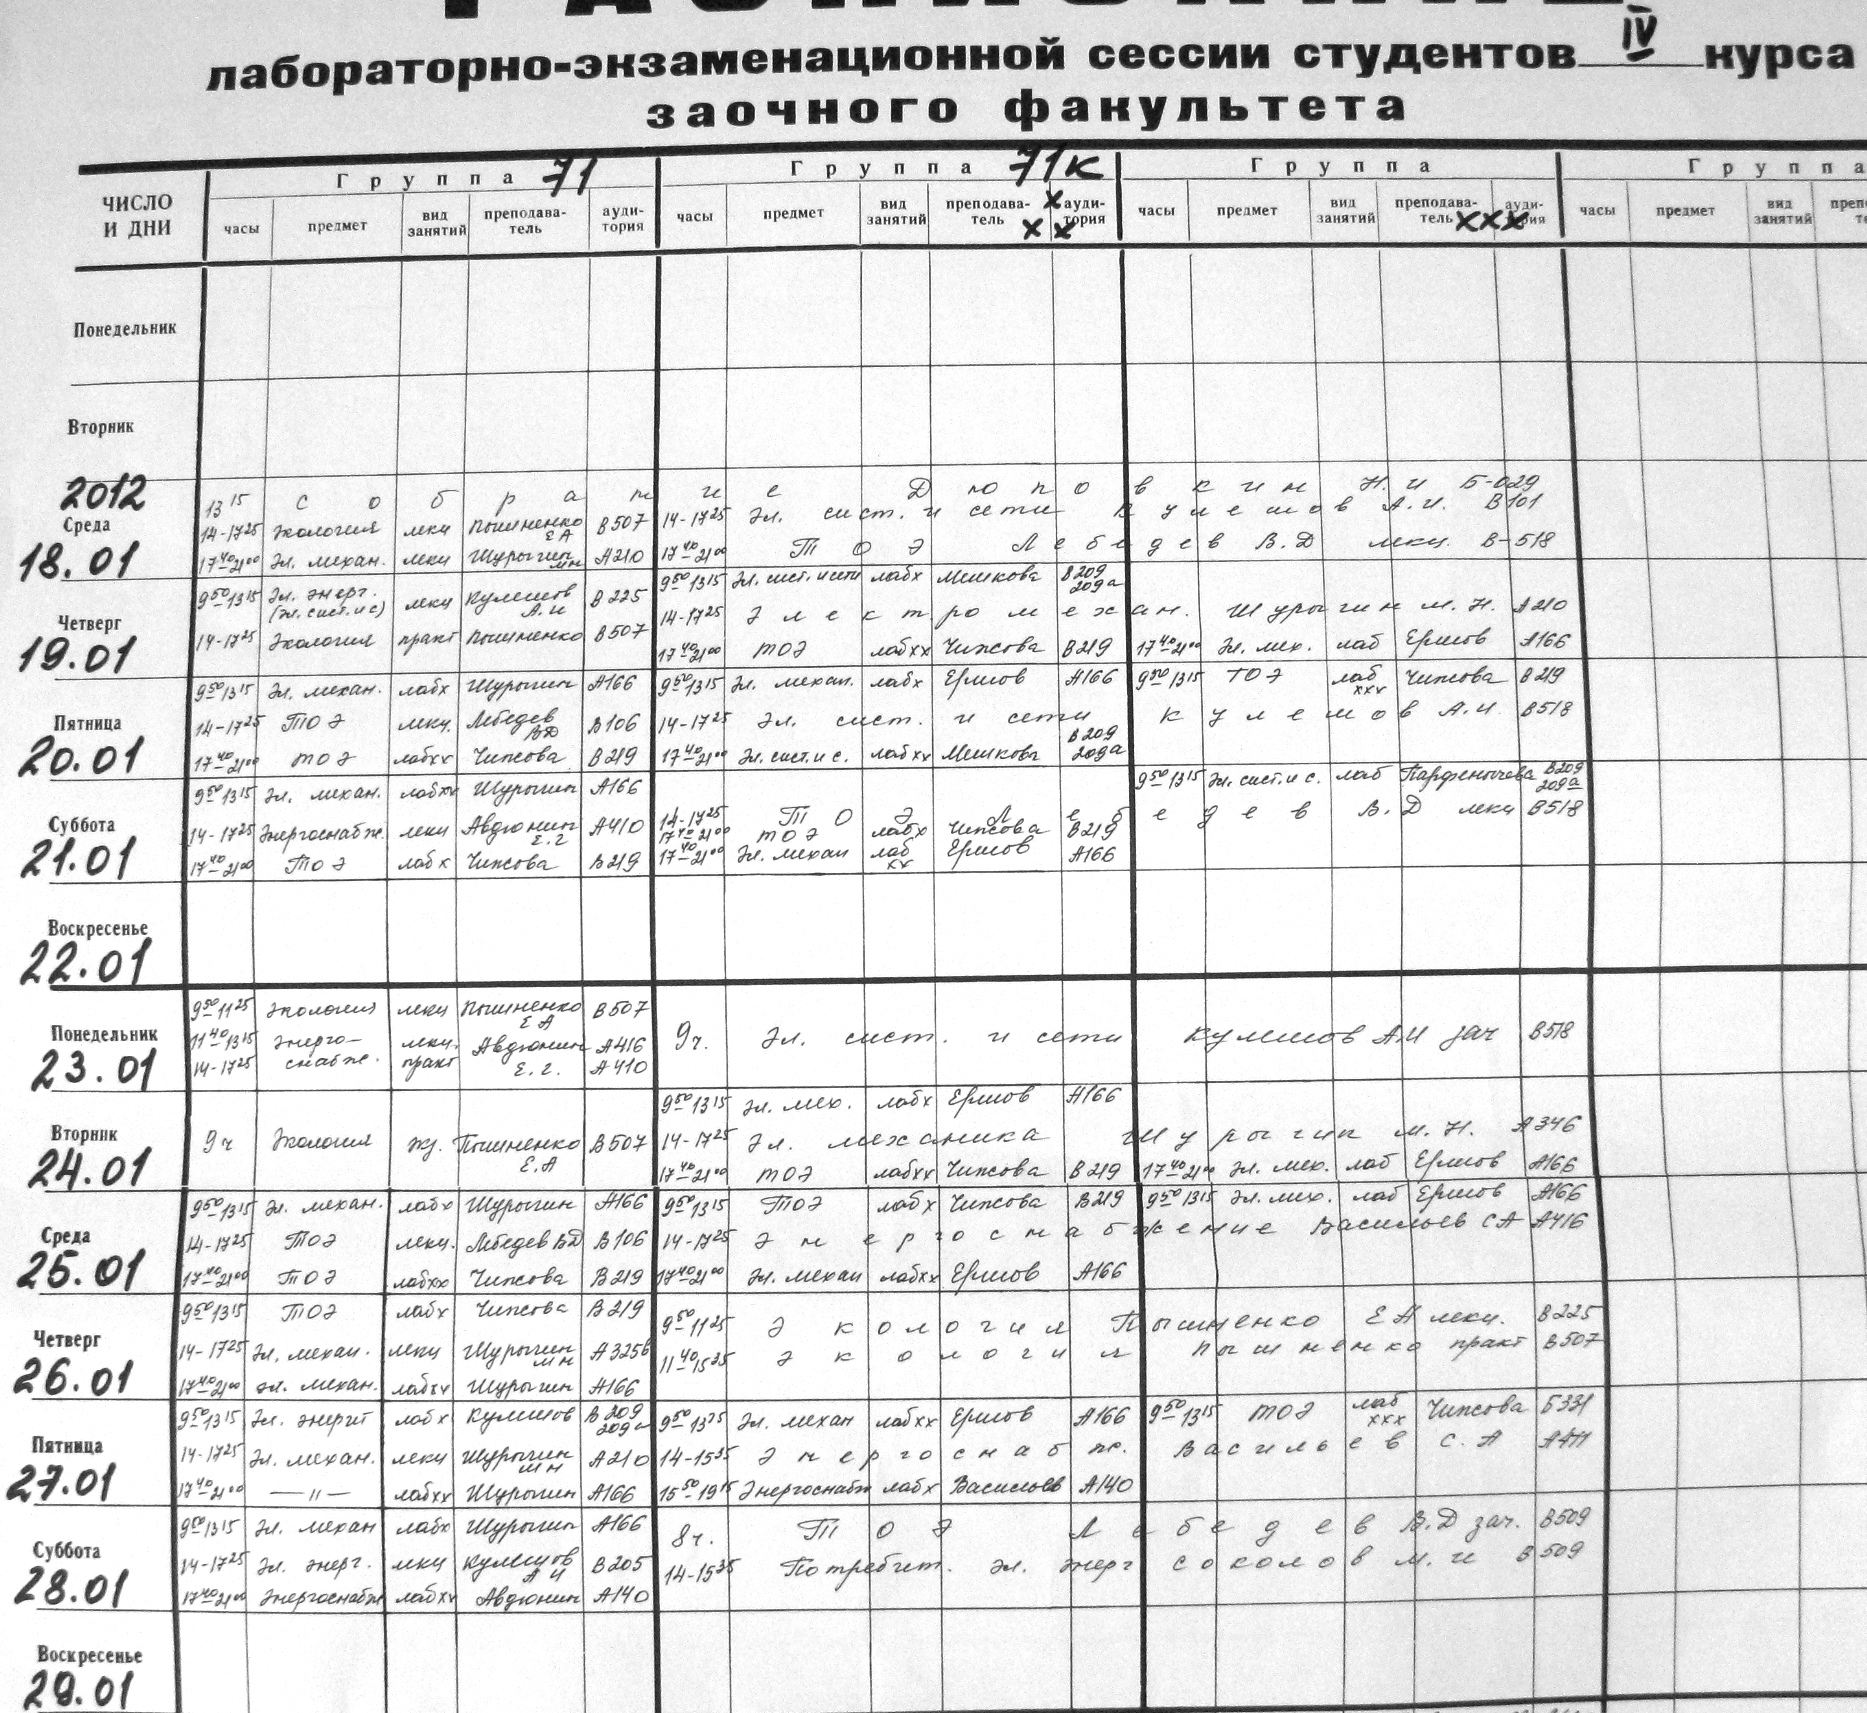 РАСПИСАНИЕ
лабораторно-экзаменационной сессии студентов IV курса
заочного факультета
ЧИСЛО И ДНИ
Группа 71
Группа 71к
Группа
Группа
часы предмет вид занятий преподаватель аудитория
часы предмет вид занятий преподаватель аудитория х хх
часы предмет вид занятий преподаватель аудитория ххх
часы предмет вид занятий
Понедельник
Вторник
2012
Среда
18.01
13 15 собрание Дюповкин Н.И Б-029
14-17 25 Экология лекц Пышненко ЕА В507
14-17 25 Эл. сист. и сети Кулешов А.И. В101
17 40 21 00 Эл. механ. лекц Шурыгин МН А210
17 40 21 00 ТОЭ Лебедев В.Д лекц. В-518
Четверг
19.01
9 50 13 15 Эл. энерг. (эл. сист. и с) лекц Кулешов А.И В225
9 50 13 15 Эл. сист. и сети лабх Мешкова В209 209а
14-17 25 Экология практ Пышненко В507
14-17 25 Электромехан. Шурыгин М.Н. А210
17 40 21 00 ТОЭ лабхх Чижова В219
17 40 21 00 Эл. мех. лаб Ершов А166
Пятница
20.01
9 50 13 15 Эл. механ. лабх Шурыгин А166
9 50 13 15 Эл. механ. лабх Ершов А166
9 50 13 15 ТОЭ лаб ххх Чижова В219
14-17 25 ТОЭ лекц. Лебедев ВД В106
14-17 25 Эл. сист. и сети Кулешов А.И. В518
17 40 21 00 ТОЭ лабхх Чижова В219
17 40 21 00 Эл. сист. и с. лабхх Мешкова В209 209а
Суббота
21.01
9 50 13 15 Эл. механ. лабхх Шурыгин А166
9 50 13 15 Эл. сист. и с. лаб Парфенычева В209 209а
14-17 25 Энергоснабж. лекц Авдюнин Е.Г А410
14-17 25 ТОЭ Лебедев В.Д лекц В518
17 40 21 00 ТОЭ лабх Чижова В219
17 40 21 00 ТОЭ лабх Чижова В219
17 40 21 00 Эл. механ лаб хх Ершов А166
Воскресенье
22.01
Понедельник
23.01
9 50 11 25 Экология лекц Пышненко ЕА В507
11 40 13 15 Энерго- лекц. Авдюнин Е.Г. А416
14-17 25 снабж. практ А410
9ч. Эл. сист. и сети Кулешов А.И зач В518
Вторник
24.01
9ч Экология экз. Пышненко Е.А В507
9 50 13 15 Эл. мех. лабх Ершов А166
14-17 25 Эл. механика Шурыгин М.Н. А346
17 40 21 00 ТОЭ лабхх Чижова В219
17 40 21 00 Эл. мех. лаб Ершов А166
Среда
25.01
9 50 13 15 Эл. механ. лабх Шурыгин А166
9 50 13 15 ТОЭ лабх Чижова В219
9 50 13 15 Эл. мех. лаб Ершов А166
14-17 25 ТОЭ лекц. Лебедев ВД В106
14-17 25 Энергоснабжение Васильев СА А416
17 40 21 00 ТОЭ лабхх Чижова В219
17 40 21 00 Эл. механ лабхх Ершов А166
Четверг
26.01
9 50 13 15 ТОЭ лабх Чижова В219
9 50 11 25 Экология Пышненко ЕА лекц. В225
14-17 25 Эл. механ. лекц Шурыгин МН А325б
11 40 15 35 Экология Пышненко практ В507
17 40 21 00 эл. механ. лабхх Шурыгин А166
Пятница
27.01
9 50 13 15 Эл. энерг лабх Кулешов В209 209а
9 50 13 15 Эл. механ лабхх Ершов А166
9 50 13 15 ТОЭ лаб ххх Чижова Б331
14-17 25 Эл. механ. лекц Шурыгин МН А210
14-15 35 Энергоснабж. Васильев С.А А411
17 40 21 00 —"— лабхх Шурыгин А166
15 50 19 15 Энергоснабж лабх Васильев А140
Суббота
28.01
9 50 13 15 Эл. механ лабх Шурыгин А166
8ч. ТОЭ Лебедев В.Д зач. В509
14-17 25 Эл. энерг. лекц Кулешов АИ В205
14-15 35 Потребит. эл. энерг Соколов М.И В509
17 40 21 00 Энергоснабж лабхх Авдюнин А140
Воскресенье
29.01